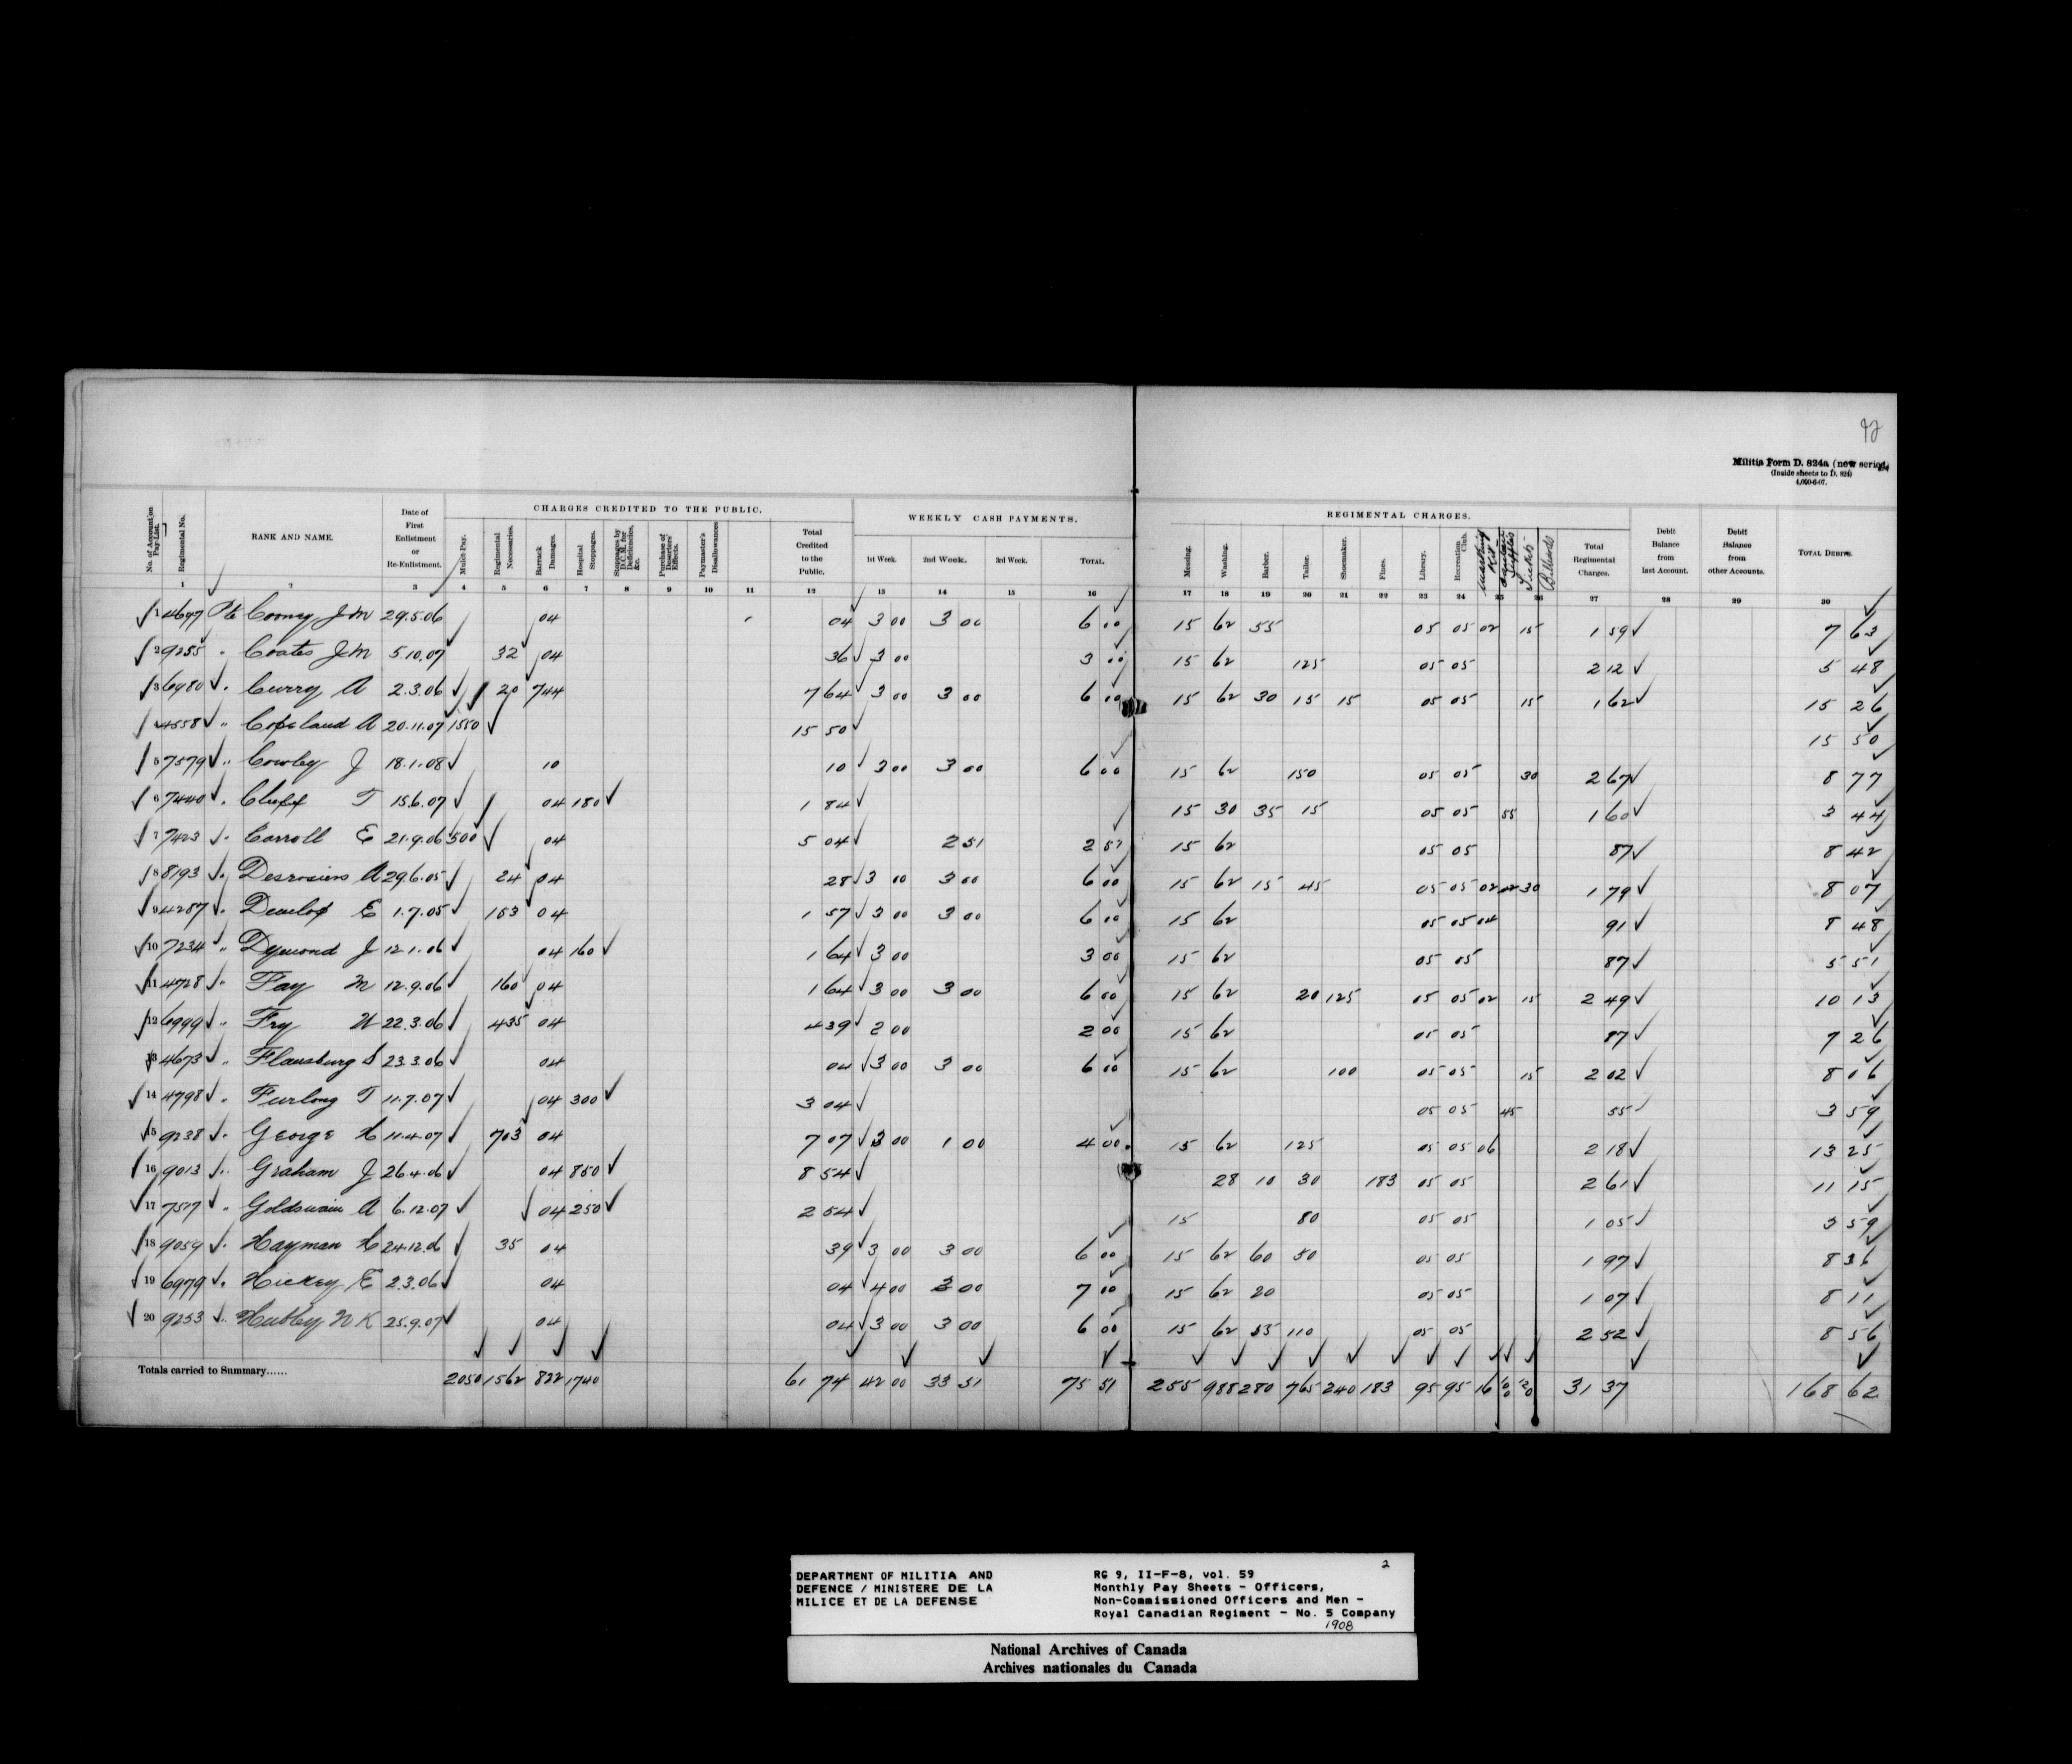 92
Militia Form D. 824a (new series)
(Inside sheets to D. 824)
4,000-6-07.
CHARGES CREDITED TO THE PUBLIC. WEEKLY CASH PAYMENTS. REGIMENTAL CHARGES.
No. of Account on Pay-List. Regimental No. RANK AND NAME. Date of First Enlistment or Re-Enlistment. Mulct Pay. Regimental Necessaries. Barrack Damages. Hospital Stoppages. Stoppages by D.C.M. for Deficiencies, &c. Purchase of Deserters' Effects. Paymaster's Disallowances Total Credited to the Public. 1st Week. 2nd Week. 3rd Week. TOTAL. Messing. Washing. Barber. Tailor. Shoemaker. Fines. Library. Recreation Club. Marking Kit Tickets Billiards Total Regimental Charges. Debit Balance from last Account. Debit Balance from other Accounts. TOTAL DEBITS.
1 2 3 4 5 6 7 8 9 10 11 12 13 14 15 16 17 18 19 20 21 22 23 24 25 26 27 28 29 30
1 4697 Pte Cooney J M 29.5.06 04 04 3 00 3 00 6 00 15 62 55 05 05 02 15 1 59 7 63
2 9255 " Coates J M 5.10.07 32 04 36 3 00 3 00 15 62 125 05 05 2 12 5 48
3 6980 " Curry A 2.3.06 20 744 7 64 3 00 3 00 6 00 15 62 30 15 15 05 05 15 1 62 15 26
4 4558 " Copeland A 20.11.07 1550 15 50 15 50
5 7579 " Cowley J 18.1.08 10 10 3 00 3 00 6 00 15 62 150 05 05 30 2 67 8 77
6 7440 " T 15.6.07 04 180 1 84 15 30 35 15 05 05 55 1 60 3 44
7 7423 " Carroll E 21.9.06 500 04 5 04 2 51 2 51 15 62 05 05 87 8 42
8 8193 " Desrosiers A 29.6.05 24 04 28 3 00 3 00 6 00 15 62 15 45 05 05 02 30 1 79 8 07
9 4287 " Dunlop E 1.7.05 153 04 1 57 3 00 3 00 6 00 15 62 05 05 04 91 8 48
10 7234 " Dymond J 12.1.06 04 160 1 64 3 00 3 00 15 62 05 05 87 5 51
11 4728 " Fay M 12.9.06 160 04 1 64 3 00 3 00 6 00 15 62 20 125 05 05 02 15 2 49 10 13
12 6999 " Fry W 22.3.06 435 04 4 39 2 00 2 00 15 62 05 05 87 7 26
13 4673 " Flansburg S 23.3.06 04 04 3 00 3 00 6 00 15 62 100 05 05 15 2 02 8 06
14 4798 " Furlong T 11.7.07 04 300 3 04 05 05 45 55 3 59
15 9238 " George H 11.4.07 703 04 7 07 3 00 1 00 4 00 15 62 125 05 05 06 2 18 13 25
16 9013 " Graham J 26.4.06 04 850 8 54 28 10 30 183 05 05 2 61 11 15
17 7517 " Goldswain A 6.12.07 04 250 2 54 15 80 05 05 1 05 3 59
18 9059 " Hayman H 24.12.06 35 04 39 3 00 3 00 6 00 15 62 60 50 05 05 1 97 8 36
19 6979 " Hickey E 2.3.06 04 04 4 00 3 00 7 00 15 62 20 05 05 1 07 8 11
20 9253 " Hubley N K 25.9.07 04 04 3 00 3 00 6 00 15 62 55 110 05 05 2 52 8 56
Totals carried to Summary...... 2050 1562 822 1740 61 74 42 00 33 51 75 51 255 988 280 765 240 183 95 95 16 31 37 168 62
2
DEPARTMENT OF MILITIA AND
DEFENCE / MINISTERE DE LA
MILICE ET DE LA DEFENSE
RG 9, II-F-8, vol. 59
Monthly Pay Sheets - Officers,
Non-Commissioned Officers and Men -
Royal Canadian Regiment - No. 5 Company
1908
National Archives of Canada
Archives nationales du Canada